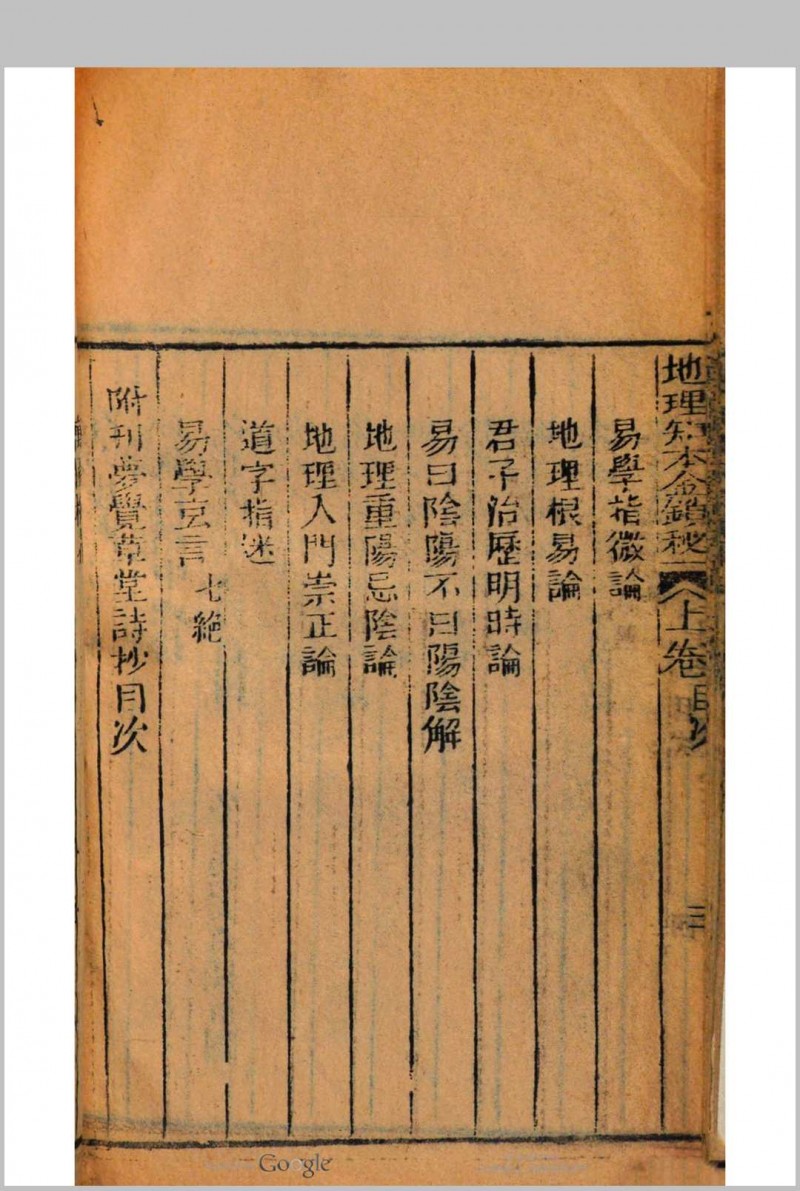 地理知本金鎖秘 上卷 目次 三
易學指微論
地理根易論
君子治歷明時論
易曰陰陽不曰陽陰解
地理重陽忌陰論
地理入門崇正論
道字指迷
易學玄言 七絕
附刊夢覺草堂詩抄目次
Google